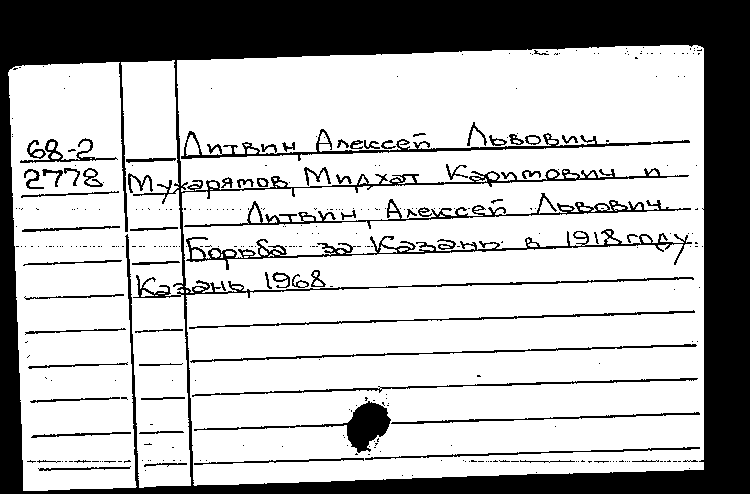 68-2 Литвин, Алексей Львович.
2778 Мухарямов, Мидхат Каримович и
Литвин, Алексей Львович.
Борьба за Казань в 1918 году.
Казань, 1968.